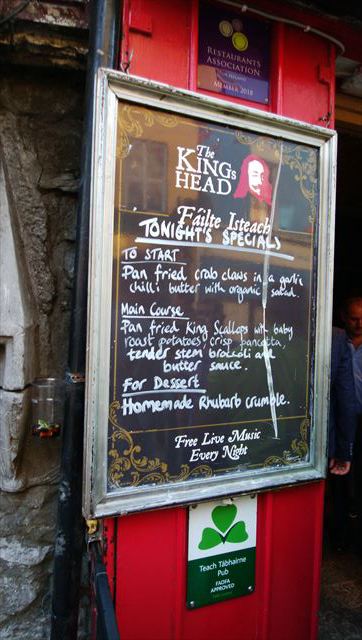 RESTAURANTS
ASSOCIATION
MEMBER 2018
The
KING's
HEAD
Fáilte Isteach
TONIGHT'S SPECIALS
TO START
Pan fried crab claws in a garlic
chilli butter with organic salad.
Main Course
Pan fried King Scallops with baby
roast potatoes crisp pancetta,
tender stem broccoli and
butter sauce.
For Dessert
Homemade Rhubarb crumble.
Free Live Music
Every Night
Teach Tábhairne
Pub
FAILTE
APPROVED